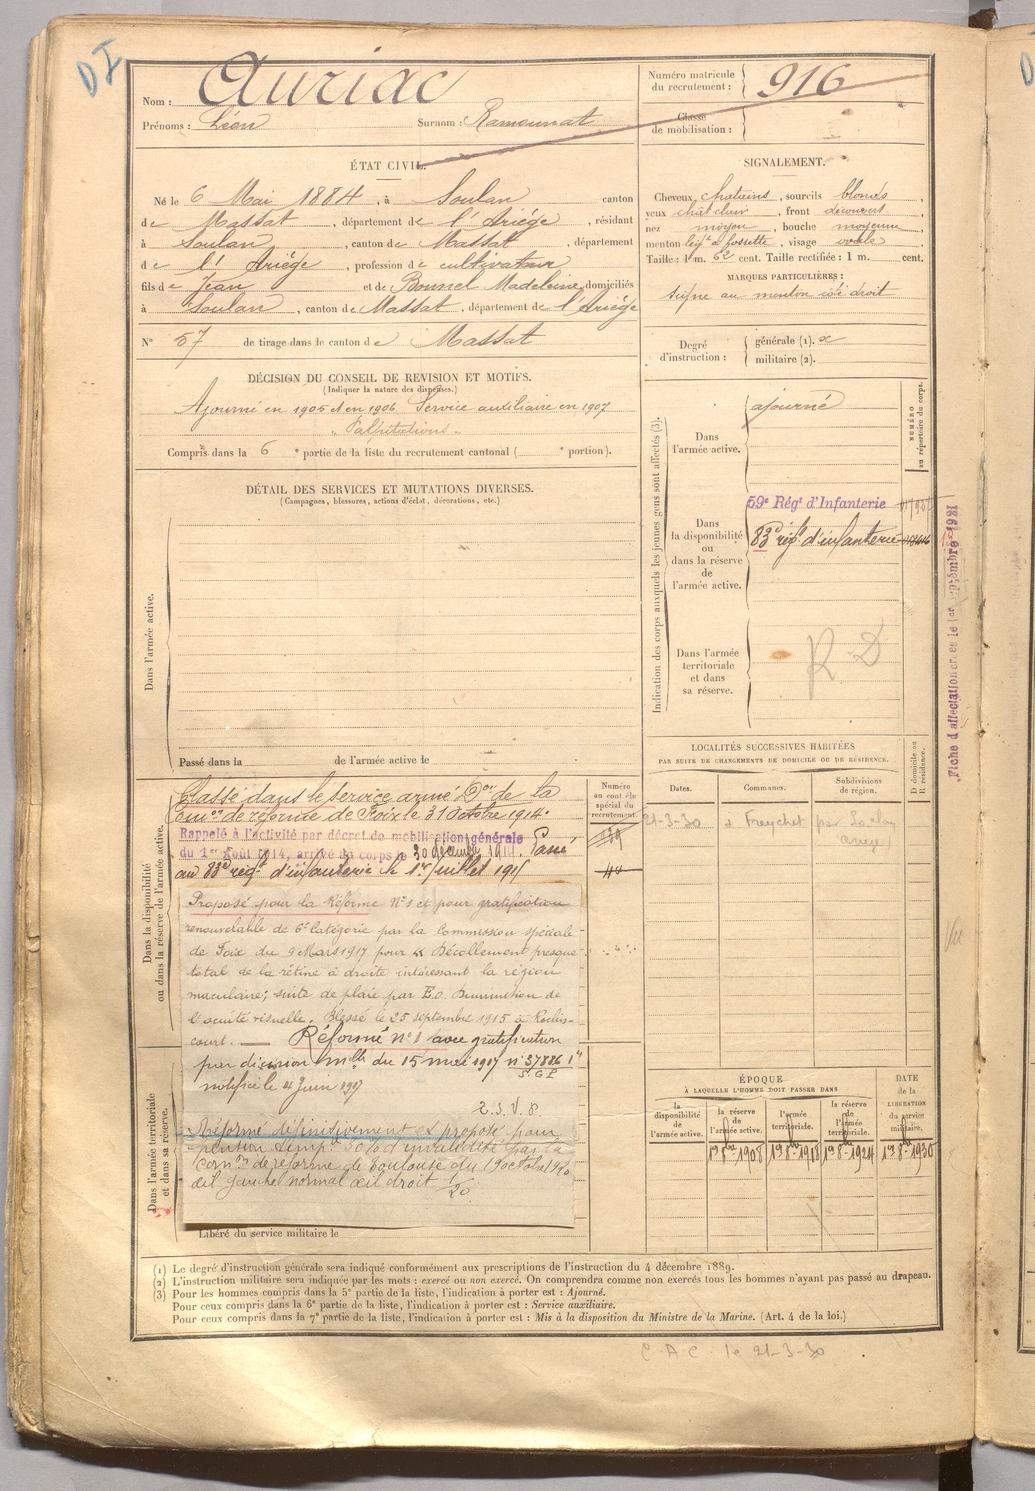 DI
Nom : Auriac
Prénoms : Léon Surnom : Ramounat
Numéro matricule
du recrutement : 916
Classe
de mobilisation :
ÉTAT CIVIL.
Né le 6 Mai 1884, à Soulan canton
de Massat, département de l'Ariége, résidant
à Soulan, canton de Massat, département
de l'Ariége, profession de cultivateur
fils de Jean et de Bonnel Madeleine, domiciliés
à Soulan, canton de Massat, département de l'Ariége
N° 57 de tirage dans le canton de Massat
SIGNALEMENT.
Cheveux chatains, sourcils blonds,
yeux chat clair, front découvert,
nez moyen, bouche moyenne,
menton à fossette, visage ovale,
Taille : 1 m. 62 cent. Taille rectifiée : 1 m. cent.
MARQUES PARTICULIÈRES :
signe au menton côté droit
Degré
d'instruction :
générale (1).
militaire (2).
DÉCISION DU CONSEIL DE REVISION ET MOTIFS.
(Indiquer la nature des dispenses.)
Ajourné en 1905 et en 1906. Service auxiliaire en 1907
"Palpitations"
Compris dans la 6e partie de la liste du recrutement cantonal ( e portion).
DÉTAIL DES SERVICES ET MUTATIONS DIVERSES.
(Campagnes, blessures, actions d'éclat, décorations, etc.)
Dans l'armée active.
Passé dans la de l'armée active le
Indication des corps auxquels les jeunes gens sont affectés (3).
NUMÉRO
au répertoire du corps.
Dans
l'armée active.
ajourné
Dans
la disponibilité
ou
dans la réserve
de
l'armée active.
59e Régt d'Infanterie
83e régt d'infanterie
Dans l'armée
territoriale
et dans
sa réserve.
R D
Fiche d'affectation créée le 1er septembre 1921
Dans la disponibilité
ou dans la réserve de l'armée active.
Classé dans le service armé Don de la
Comon de réforme de Foix le 31 Octobre 1914.
Rappelé à l'activité par décret de mobilisation générale
du 1er Août 1914, arrivé au corps le 30 décembre 1914. Passé
au 83e régt d'infanterie le 1er juillet 1915
Numéro
au contrôle
spécial du
recrutement.
Proposé pour la Réforme N°1 et pour gratification
renouvelable de 6e Catégorie par la Commission spéciale
de Foix du 9 Mars 1917 pour « Décollement presque
total de la rétine à droite intéressant la région
maculaire; suite de plaie par E.O. Diminution de
l'acuité visuelle. Blessé le 25 septembre 1915 à Roclin-
court. — Réformé n°1 avec gratification
par décision mlle du 15 mai 1917 n° 37886 1"
S.G.P.
notifiée le 4 Juin 1917
Réformé définitivement & proposé pour
pension temp. 30% d'invalidité par la
Comon de réforme de Toulouse du 19 octobre 1920
œil gauche normal œil droit 1/20
Dans l'armée territoriale
et dans sa réserve.
Libéré du service militaire le
LOCALITÉS SUCCESSIVES HABITÉES
PAR SUITE DE CHANGEMENTS DE DOMICILE OU DE RÉSIDENCE.
D domicile ou
R résidence.
Dates. Communes. Subdivisions
de région.
21-3-30 à Freychet par Soulan
Ariège
ÉPOQUE
À LAQUELLE L'HOMME DOIT PASSER DANS
DATE
de la
LIBÉRATION
du service
militaire.
la
disponibilité
de
l'armée active.
la réserve
de
l'armée active.
l'armée
territoriale.
la réserve
de
l'armée
territoriale.
1er 8bre 1908 1er 8bre 1918 1er 8bre 1924 1er 8bre 1930
(1) Le degré d'instruction générale sera indiqué conformément aux prescriptions de l'instruction du 4 décembre 1889.
(2) L'instruction militaire sera indiquée par les mots : exercé ou non exercé. On comprendra comme non exercés tous les hommes n'ayant pas passé au drapeau.
(3) Pour les hommes compris dans la 5e partie de la liste, l'indication à porter est : Ajourné.
Pour ceux compris dans la 6e partie de la liste, l'indication à porter est : Service auxiliaire.
Pour ceux compris dans la 7e partie de la liste, l'indication à porter est : Mis à la disposition du Ministre de la Marine. (Art. 4 de la loi.)
C A C le 21-3-30